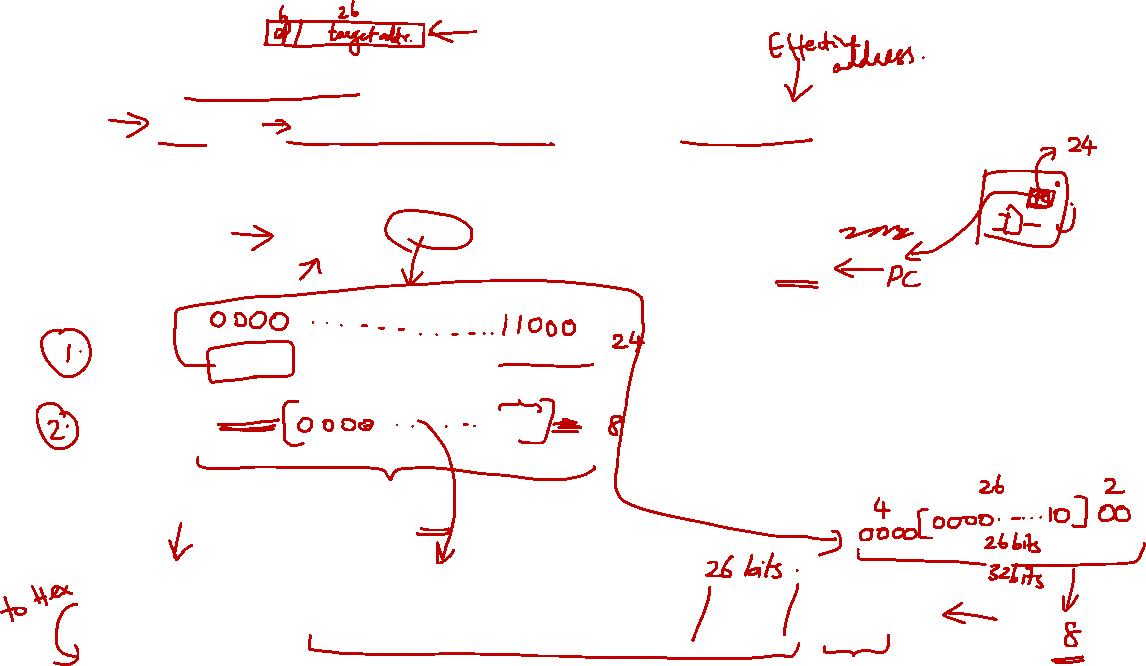 6 26
op target addr.
Effective address.
24
PC
1. 0000 ............ 11000 24
2. [0000 ...... ] 8
4 26 2
0000[0000.-....10]00
26 bits
32 bits
26 bits.
to Hex
8